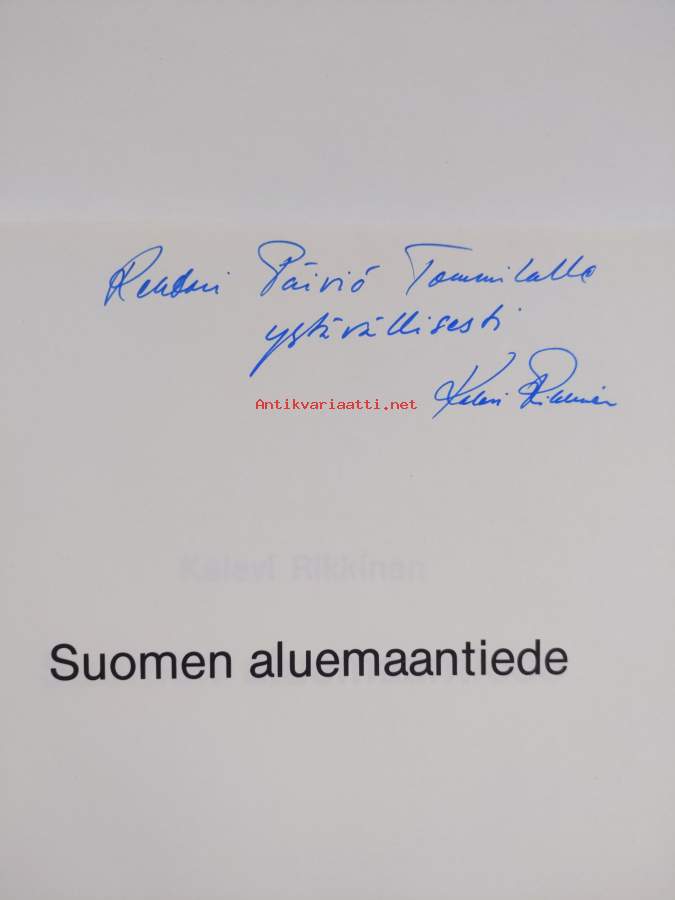 Rehtori Päiviö Tommilalle
ystävällisesti
Antikvariaatti.net
Kalevi Rikkinen
Kalevi Rikkinen
Suomen aluemaantiede